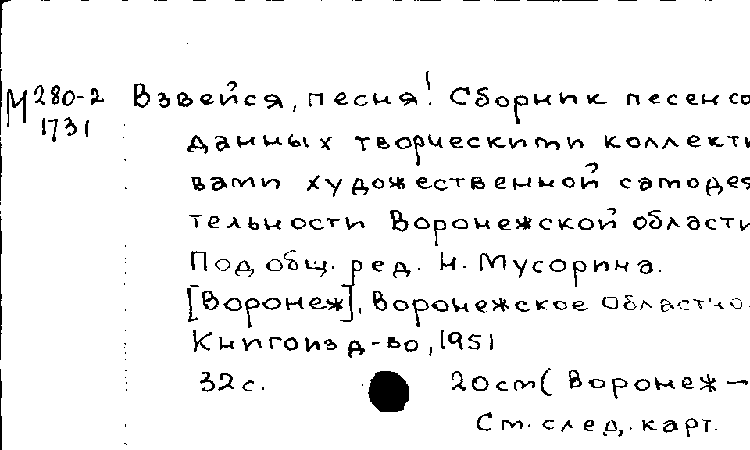 М 280-2 Взвейся, песня! Сборник песен со
1731 данных творческими коллекти
вами художественной самодея
тельности Воронежской области
Под общ. ред. Н. Мусорина.
[Воронеж], Воронежское областно
Книгоизд-во, 1951
32 с. 20 см (Воронеж—
См. след. карт.